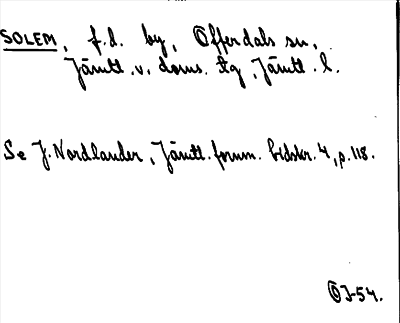 SOLEM, f.d. by, Offerdals sn,
Jämtl. v. doms. tg, Jämtl. l.
Se J. Nordlander, Jämtl. fornm. tidskr. 4, p. 118.
OJ-54.